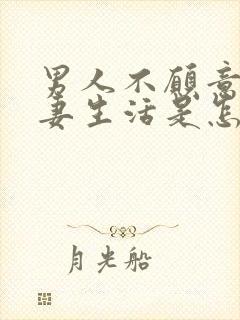 男人不愿意
妻生活是怎
月光船